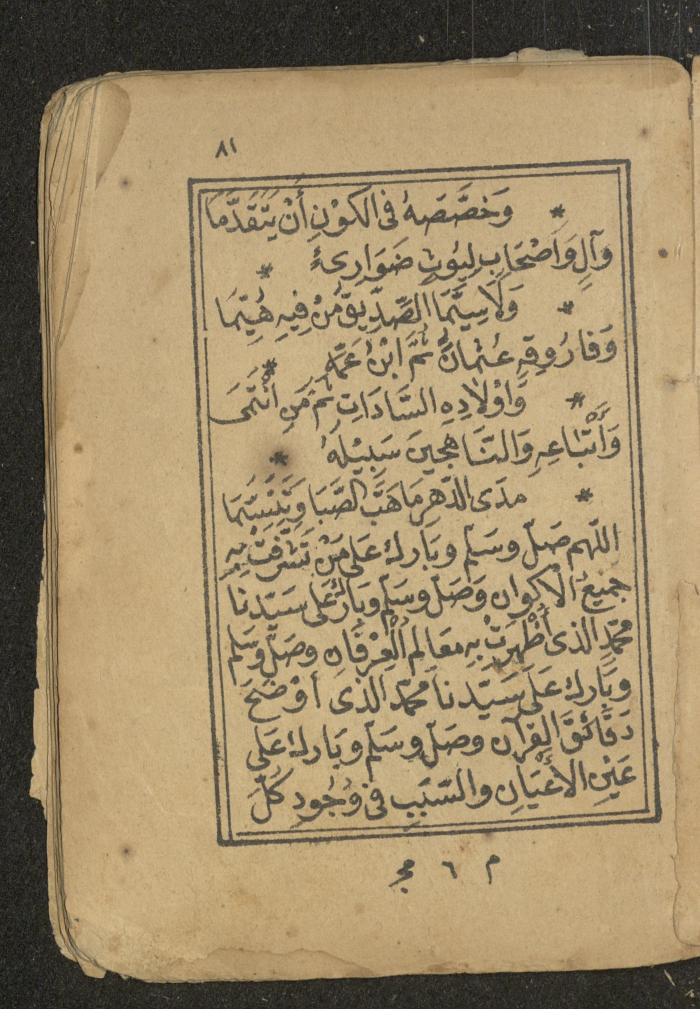 ٨١
* وَخَصَّصَهُ فِى الكَوْنِ أَنْ يَتَقَدَّمَا
وَآلٍ وَاَصْحَابٍ لُيُوثٍ ضَوَارِىءٍ *
* وَلَاسِيَّمَا الصَّدِّيقُ مَنْ فِيهِ هُيِّمَا
وَفَارُوقِهِ عُثْمَانُ ثُمَّ ابْنُ عَمِّهِ *
* وَاَوْلَادِهِ السَّادَاتِ ثُمَّ مَنِ انْتَمَى
وَأَتْبَاعِهِ وَالنَّاهِجِينَ سَبِيْلَهُ *
* مدَى الدَّهْرِ مَاهَبَّ الصَّبَا وَتَنَسَّمَا
اللّهم صَلِّ وسَلِّم وبَارك عَلى مَنْ تَشَرَّفَتْ بِهِ
جَميعُ الأكوان وَصَلِّ وسَلِّم وبَارك عَلى سَيّدنا
محمّد الذى أُظْهِرَتْ بِهِ مَعَالِم الْعِرْفَان وصَلِّ وسَلِّم
وبَارك عَلى سَيّدنا محمّد الذى أَوْضَحَ
دَقَائقَ القرآن وصَلِّ وسَلِّم وبَارك عَلى
عَيْنِ الأَعْيَانِ والسَّبَبِ فى وُجُودِ كُلِّ
م ٦ مج